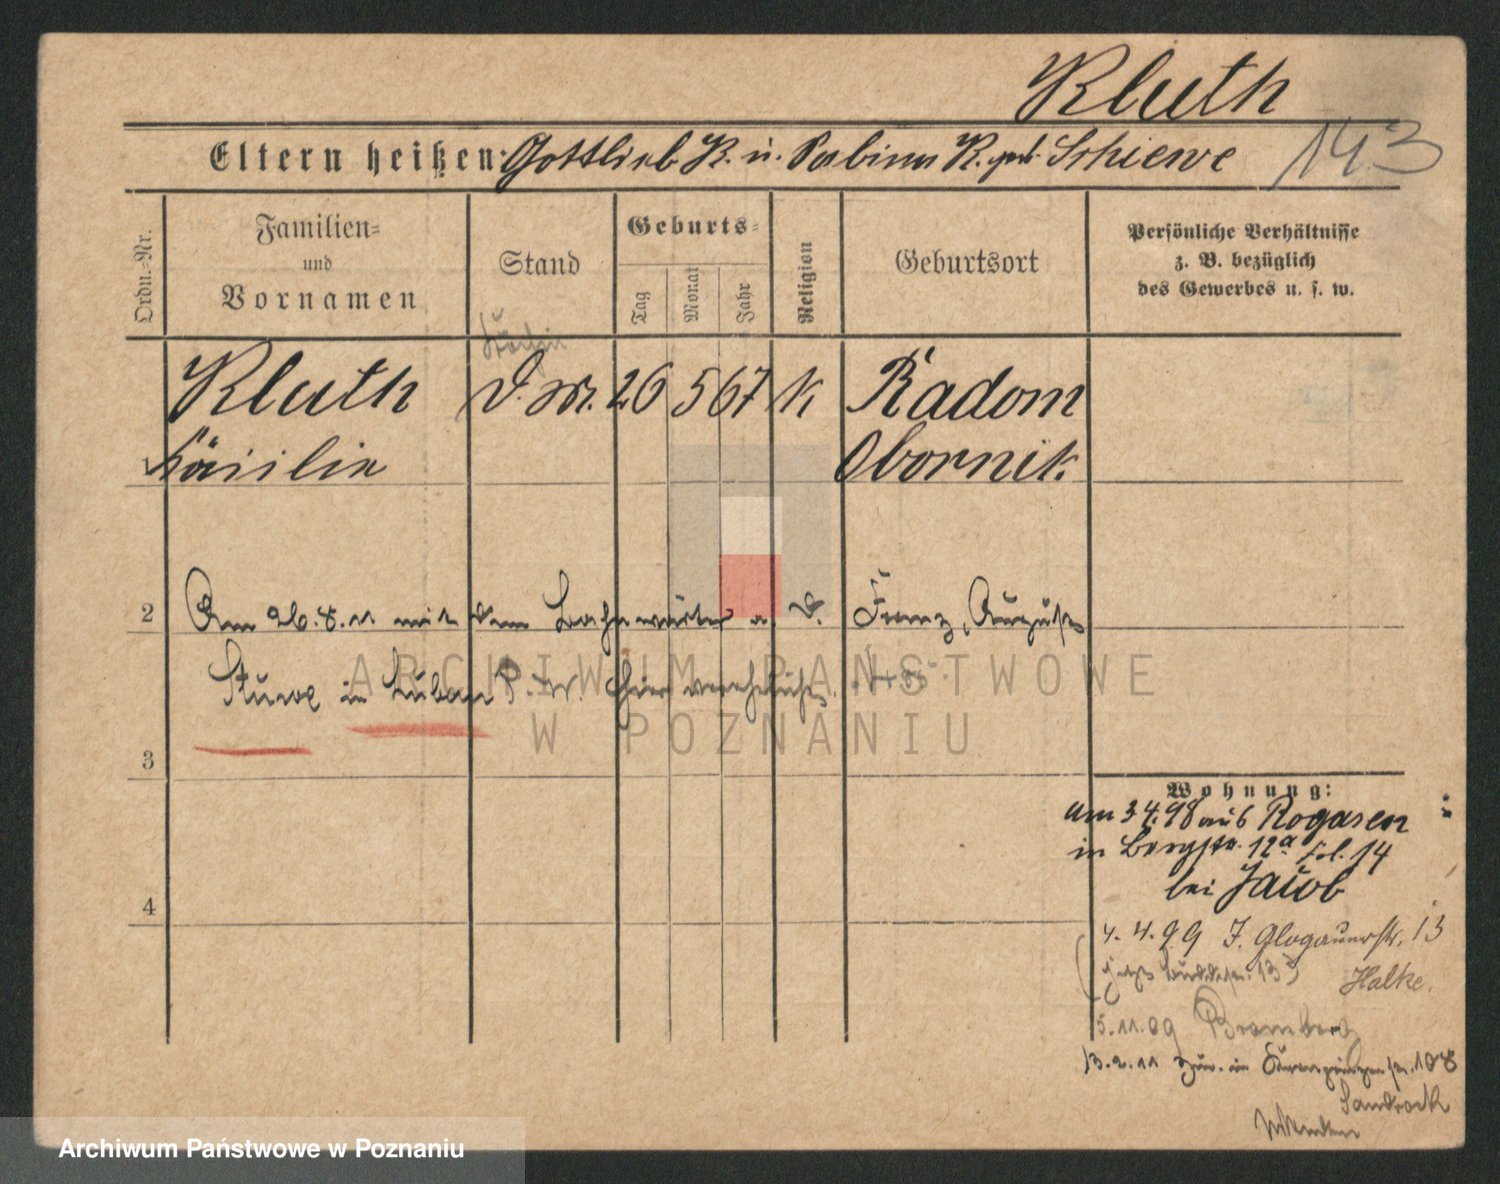 Kluth
Eltern heißen: Gottlieb K. u. Sabina K. geb. Schiewe 143
Ordn.-Nr.
Familien-
und
Vornamen
Stand
Geburts-
Tag
Monat
Jahr
Religion
Geburtsort
Persönliche Verhältnisse
z. B. bezüglich
des Gewerbes u. s. w.
Köchin
Kluth D. M. 26 5 67 K Radom
Käcilie Obornik.
2 Am 26. 8. 11 mit dem Bahnwärter a. D. Franz, August
Stuwe in Luban P. W. hier verehelicht.
ARCHIWUM PAŃSTWOWE
W POZNANIU
3
Wohnung:
am 3 4. 98 aus Rogasen
in Bergstr. 12a Fol. 14
bei Jacob
4
4. 4. 99 J. Glogauerstr. 13
jetzt 13 Halke.
5. 11. 09 Bromberg
13. 2. 11 zur. in Kronprinzenstr. 108
Sandrock
Archiwum Państwowe w Poznaniu